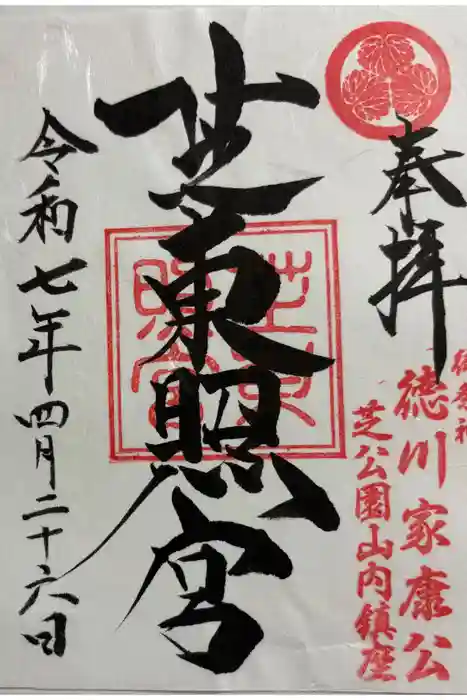 奉拝
御祭神
徳川家康公
芝公園山内鎮座
芝東照宮
芝東照宮
令和七年四月二十六日